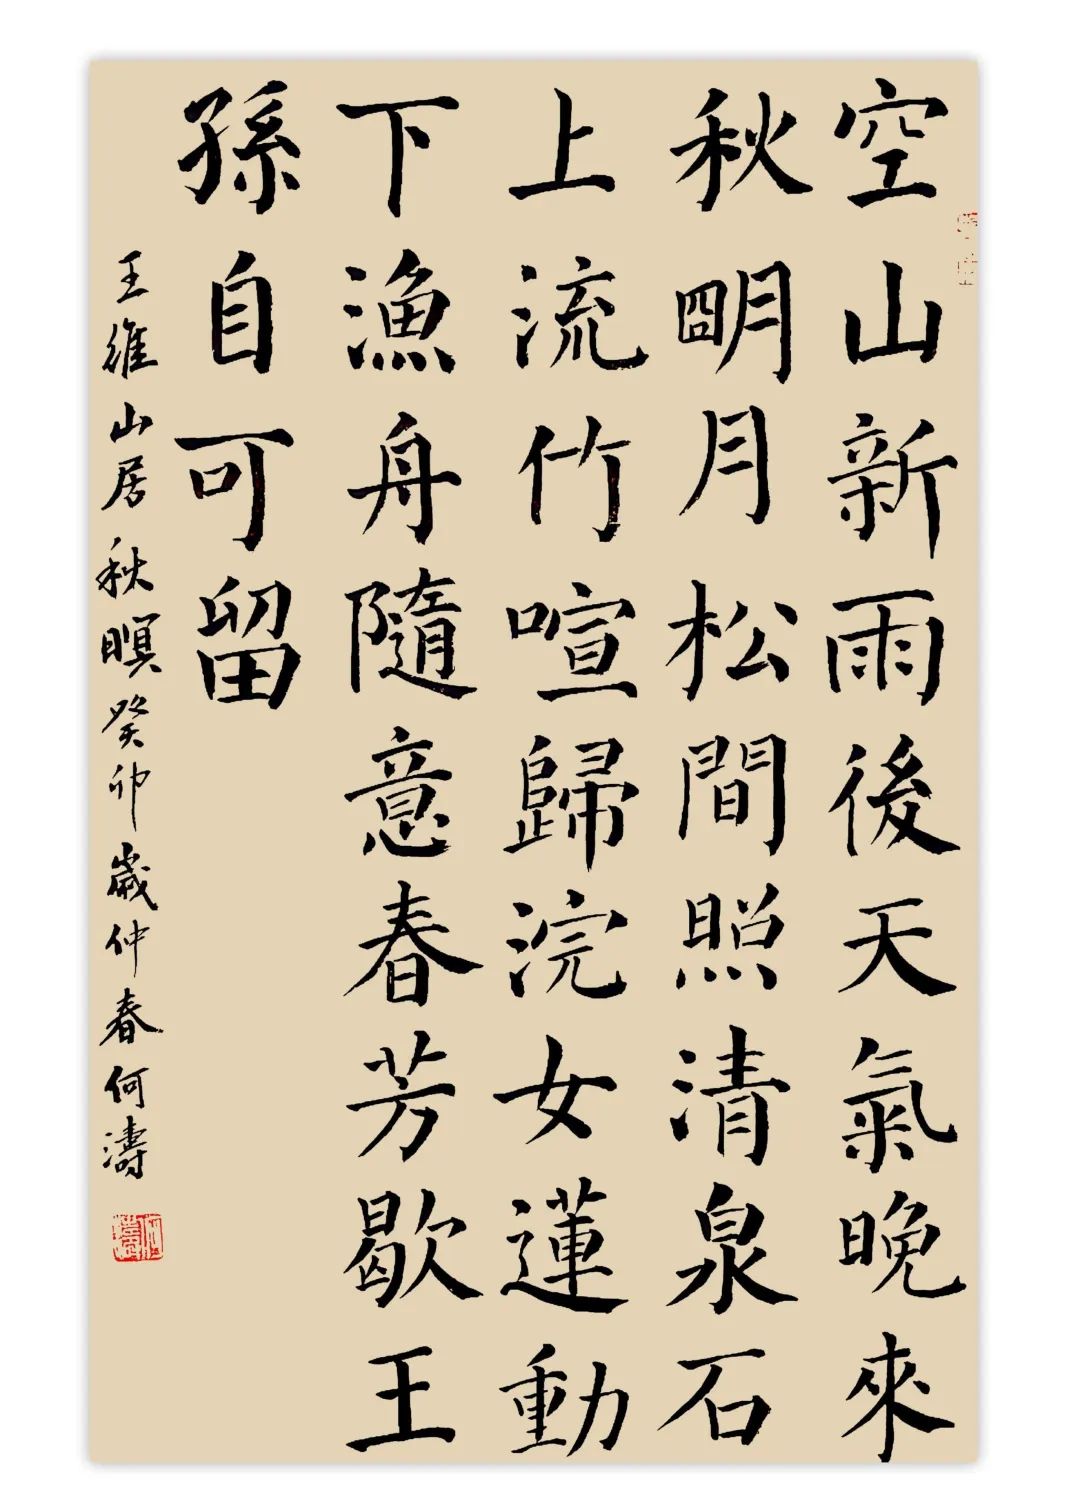 空山新雨後天氣晚來
秋朙月松間照清泉石
上流竹喧歸浣女蓮動
下漁舟隨意春芳歇王
孫自可留
王維山居秋暝癸卯歲仲春何濤